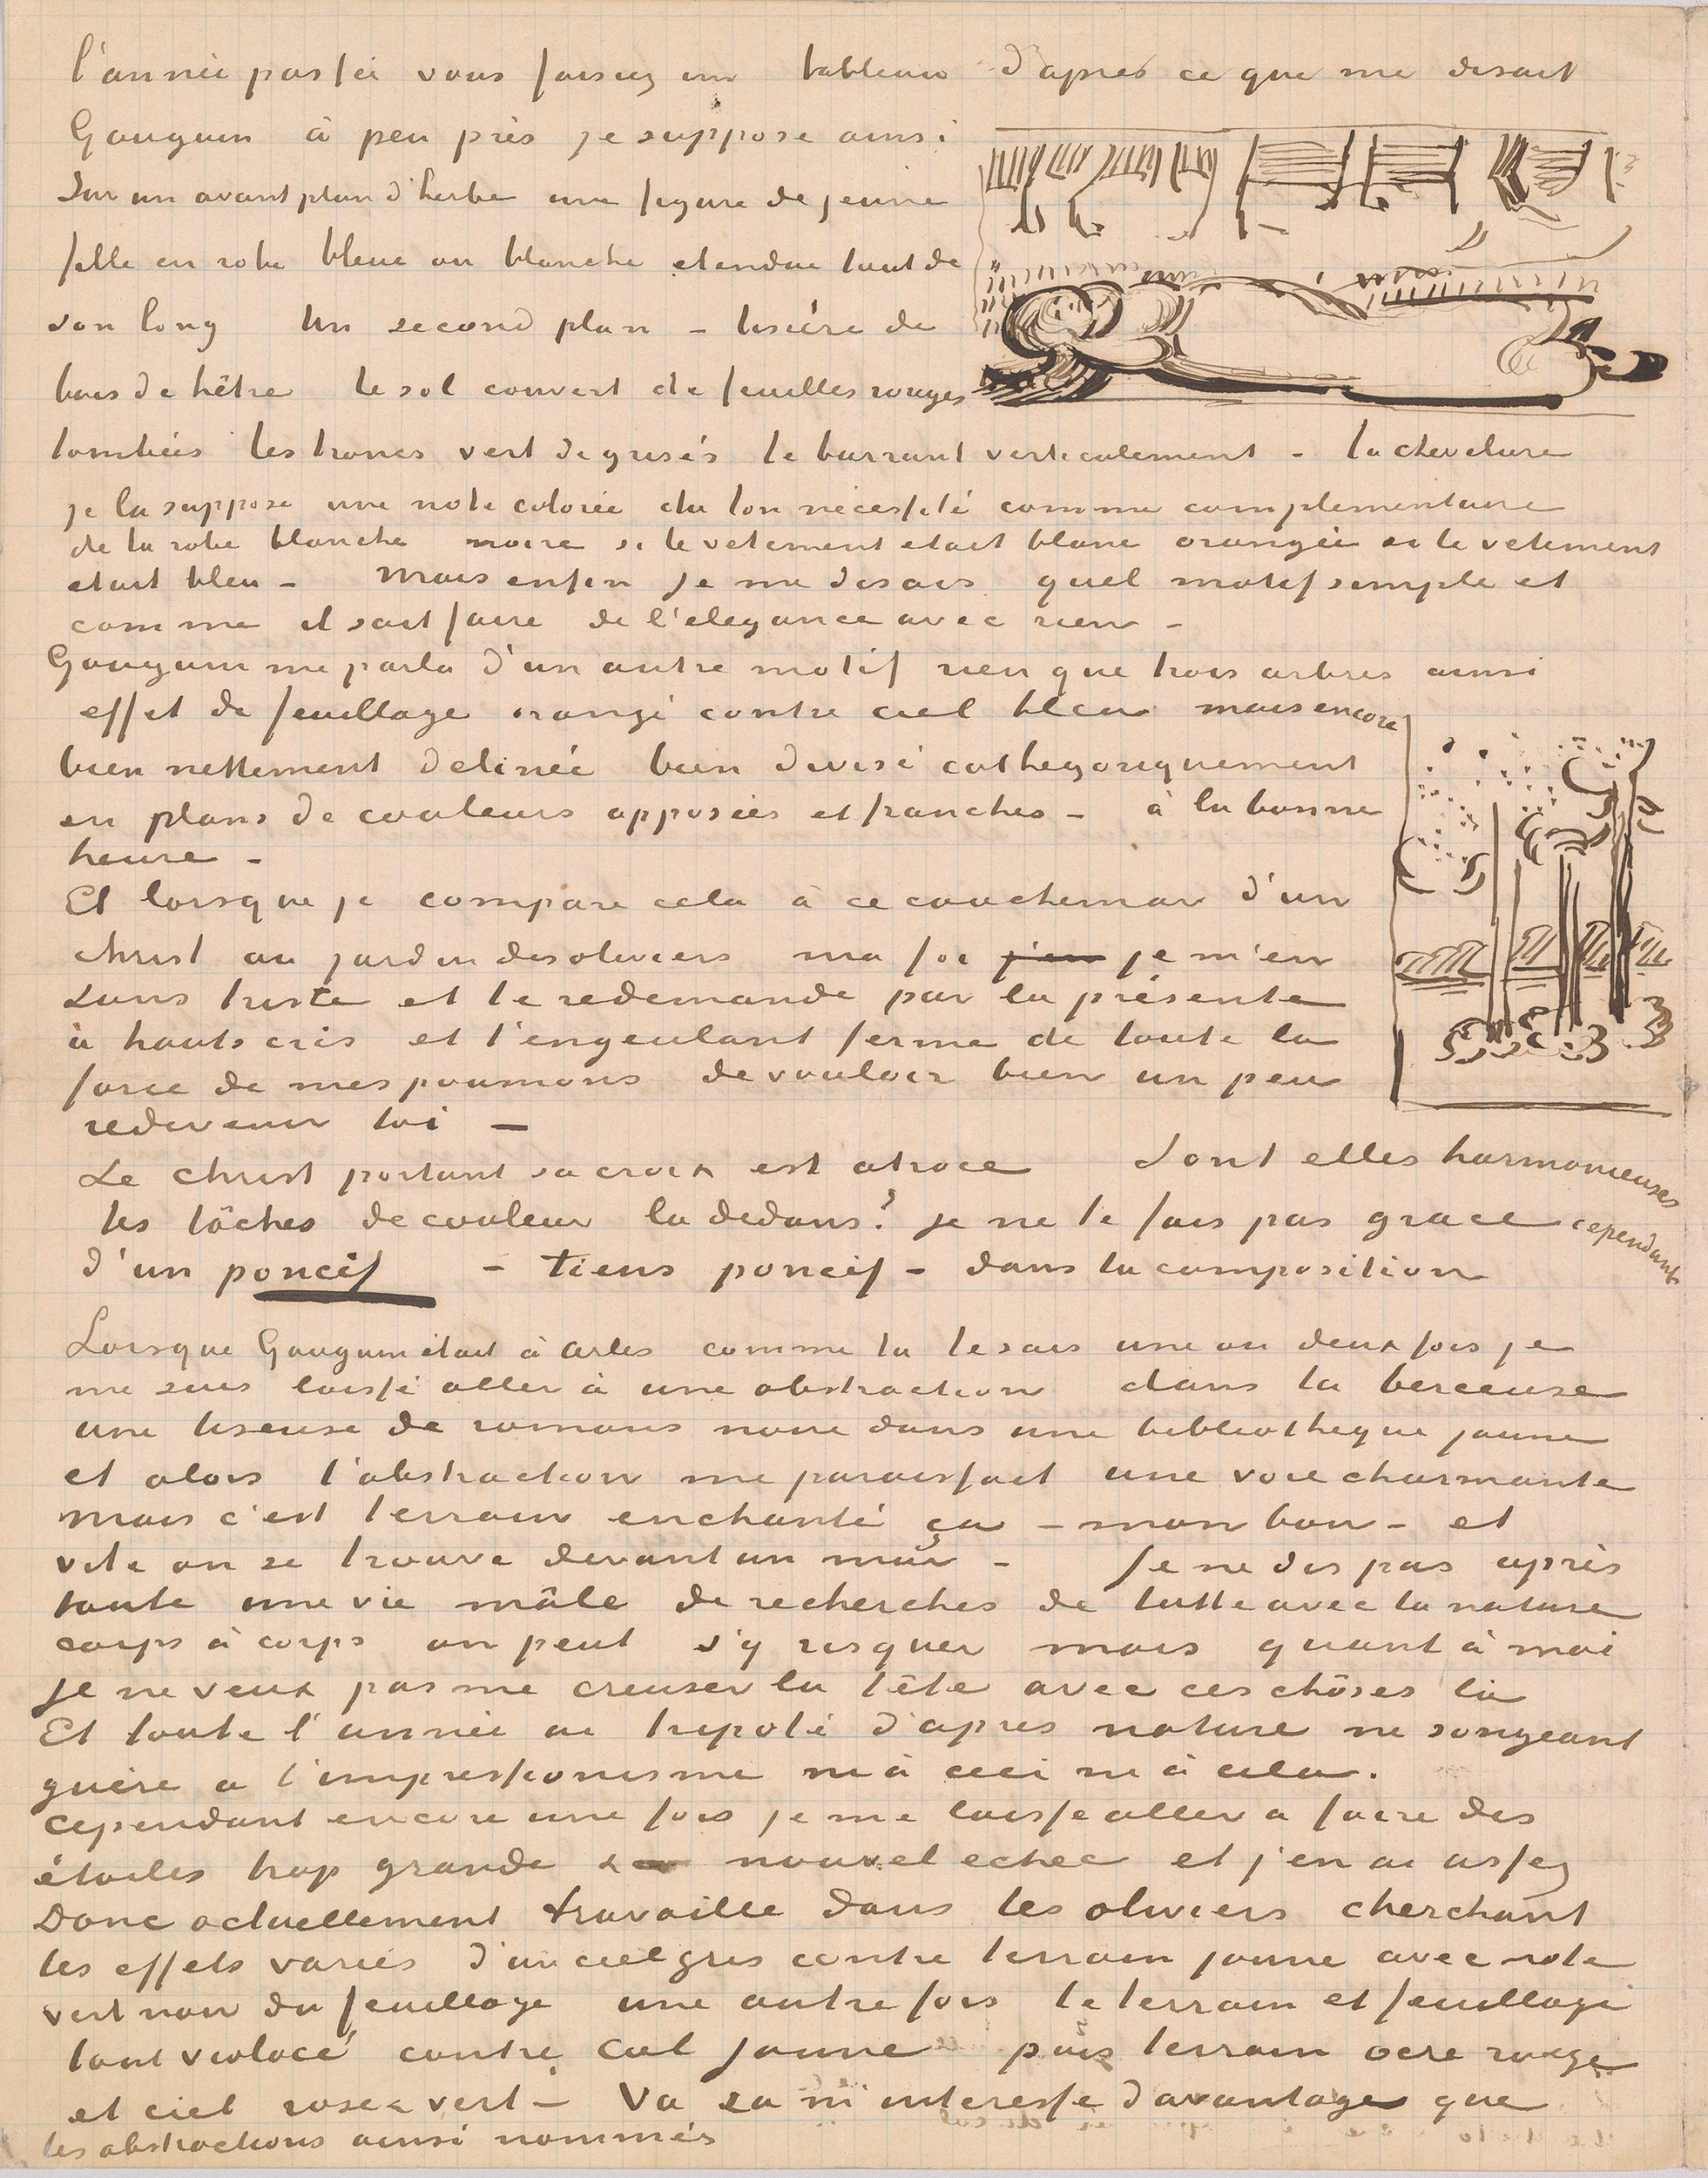 l'année passée vous faisiez un tableau d'apres ce que me disait
Gauguin à peu près je suppose ainsi
Sur un avant plan d'herbe une figure de jeune
fille en robe bleue ou blanche etendue tout de
son long Un second plan – lisière de
bois de hêtre le sol couvert de feuilles rouges
tombées les troncs vert de grisés le barrant verticalement – la chevelure
je la suppose une note colorée du ton necessité comme complementaire
de la robe blanche noire si le vetement etait blanc orangée si le vetement
etait bleu – Mais enfin je me disais quel motif simple et
comme il sait faire de l'elegance avec rien –
Gauguin me parla d'un autre motif rien que trois arbres ainsi
effet de feuillage orangé contre ciel bleu mais encore
bien nettement delinée bien divisé cathegoriquement
en plans de couleurs opposées et franches – à la bonne
heure –
Et lorsque je compare cela à ce cauchemar d'un
christ au jardin des oliviers ma foi j'en je m'en
sens triste et te redemande par la présente
à hauts cris et t'engeulant ferme de toute la
force de mes poumons de vouloir bien un peu
redevenir toi –
Le Christ portant sa croix est atroce Sont elles harmonieuses
les tâches de couleur la dedans? je ne te fais pas grace cependant
d'un poncif – tiens poncif – dans la composition
Lorsque Gauguin était à Arles comme tu le sais une ou deux fois je
me suis laissé aller à une abstraction dans la berceuse
une liseuse de romans noire dans une bibliotheque jaune
et alors l'abstraction me paraissait une voie charmante
Mais c'est terrain enchanté ça – mon bon – et
vite on se trouve devant un mur – Je ne dis pas après
toute une vie mâle de recherches de lutte avec la nature
corps à corps on peut s'y risquer mais quant à moi
je ne veux pas me creuser la tête avec ces chôses là
Et toute l'année ai tripoté d'apres nature ne songeant
guère a l'impressionisme ni à ceci ni à cela.
Cependant encore une fois je me laisse aller a faire des
étoiles trop grande &c nouvel echec et j'en ai assez
Donc actuellement travaille dans les oliviers cherchant
les effets variés d'un ciel gris contre terrain jaune avec note
vert noir du feuillage une autre fois le terrain et feuillage
tout violacé contre ciel jaune puis terrain ocre rouge
et ciel rose & vert – Va ça m'interesse davantage que
les abstractions ainsi nommés